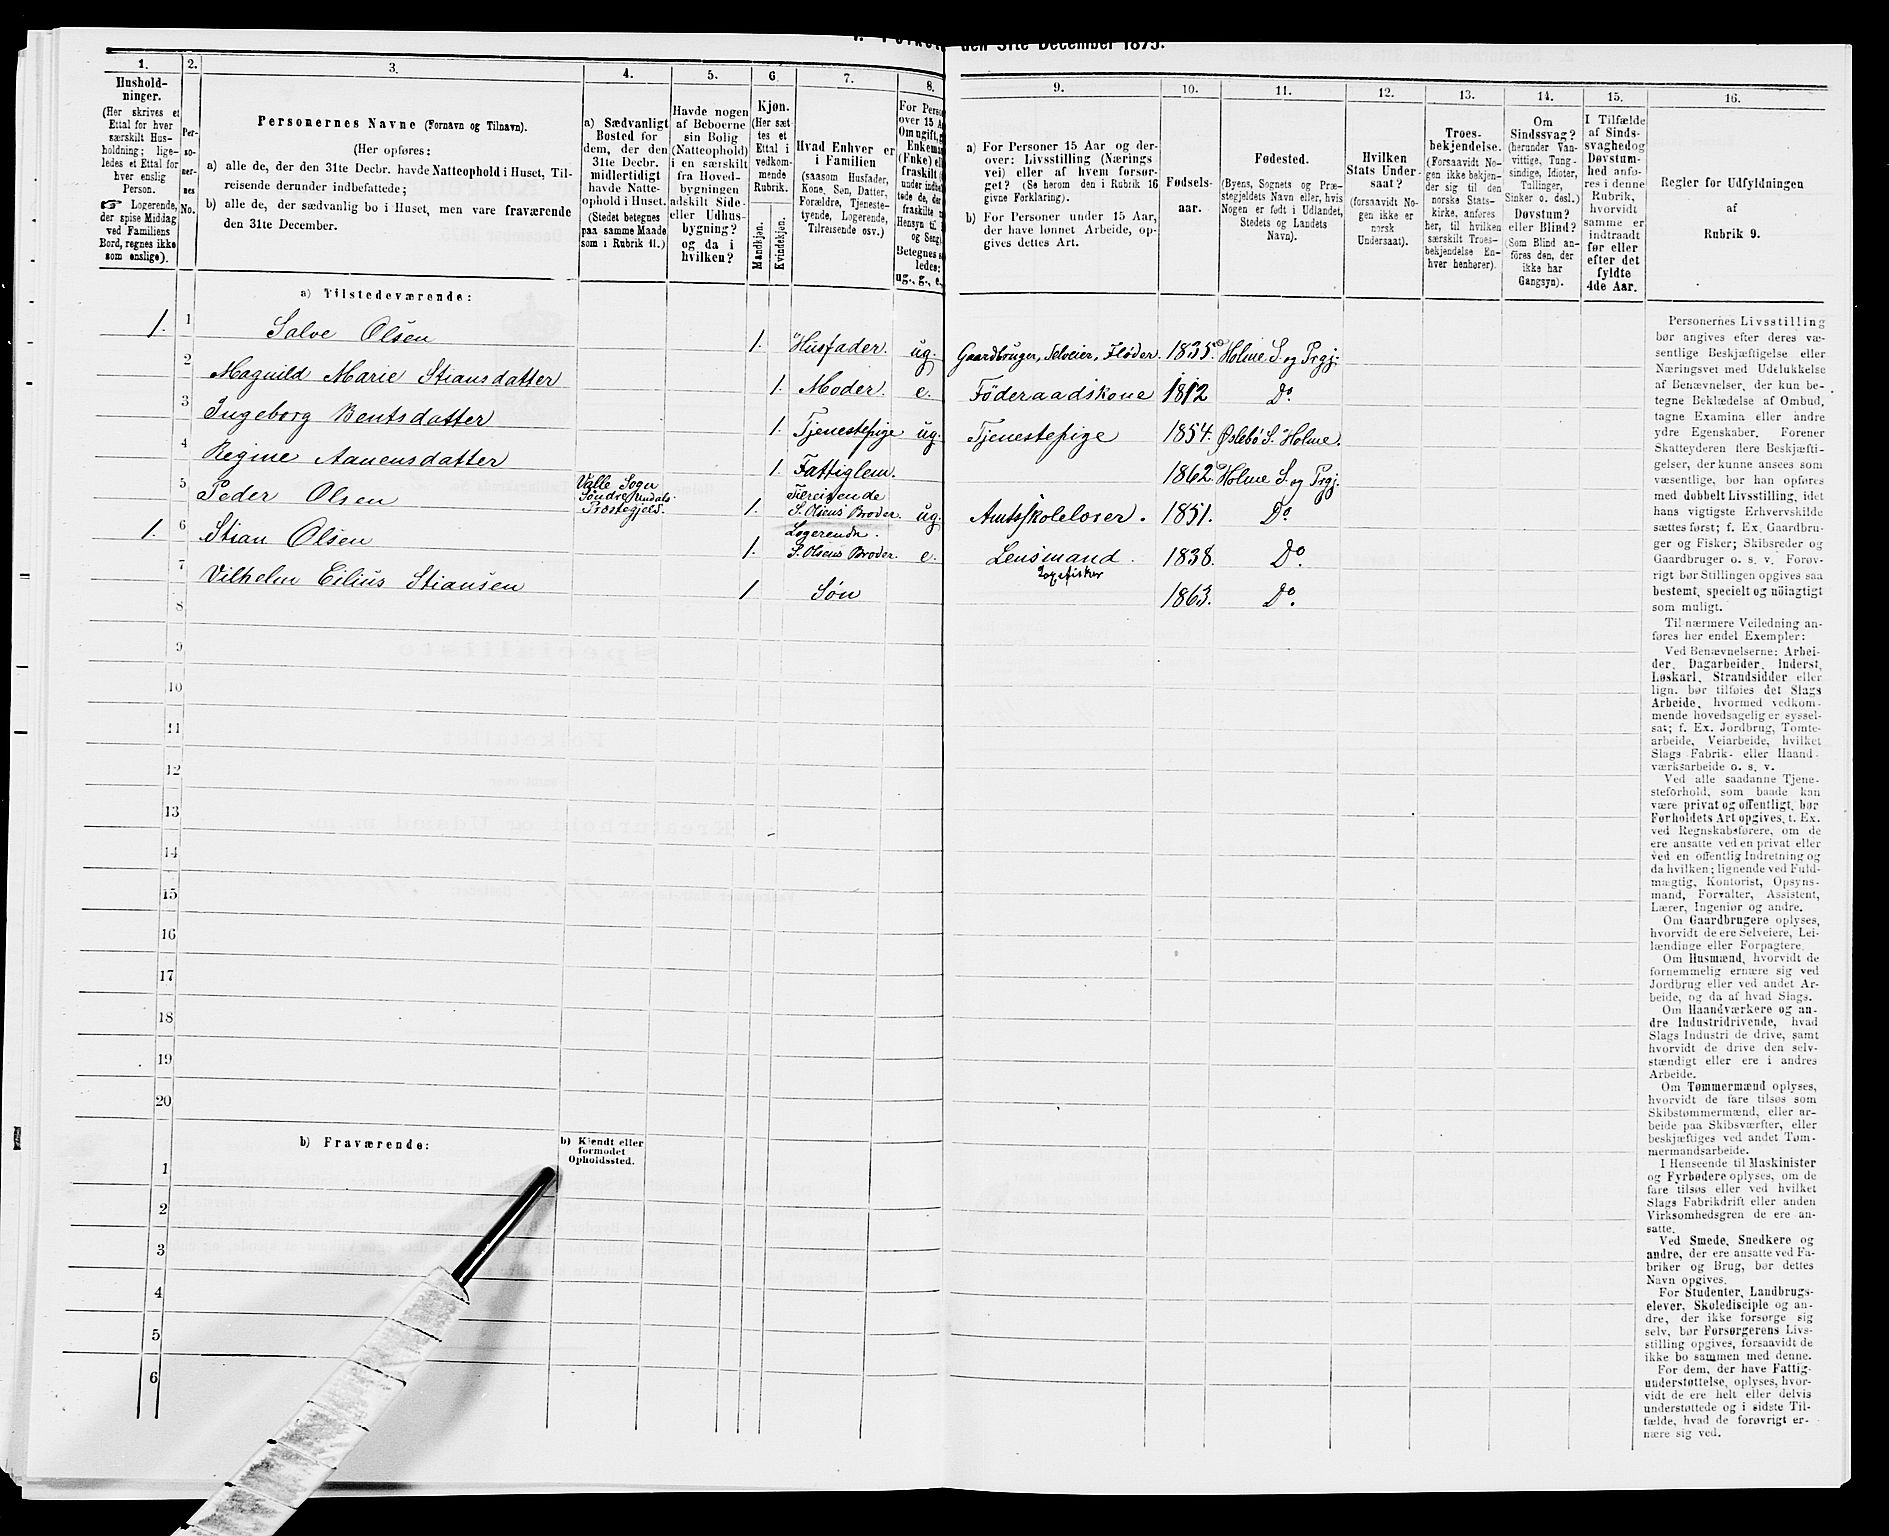 den 31te December 1875.
1. 2. 3. 4. 5. 6 7. 8.
Hushold-
ninger.
(Her skrives et
Ettal for hver
særskilt Hus-
holdning; lige-
ledes et Ettal for
hver enslig
Person.
☞ Logerende,
der spise Middag
ved Familiens
Bord, regnes ikke
som enslige).
Per-
so-
ner-
nes
No.
Personernes Navne (Fornavn og Tilnavn).
(Her opføres:
a) alle de, der den 31te Decbr. havde Natteophold i Huset, Til-
reisende derunder indbefattede;
b) alle de, der sædvanlig bo i Huset, men vare fraværende
den 31te December.
a) Sædvanligt
Bosted for
dem, der den
31te Decbr.
midlertidigt
havde Natte-
ophold i Huset.
(Stedet betegnes
paa samme Maade
som i Rubrik 11.)
Havde nogen
af Beboerne
sin Bolig
(Natteophold)
i en særskilt
fra Hoved-
bygningen
adskilt Side-
eller Udhus-
bygning?
og da i
hvilken?
Kjøn.
(Her sæt-
tes et
Ettal i
vedkom-
mende
Rubrik.
Mandkjøn.
Kvindekjøn.
Hvad Enhver er
i Familien
(saasom Husfader,
Kone, Søn, Datter,
Forældre, Tjeneste-
tyende, Logerende,
Tilreisende osv.)
For Perso
over 15 A
Om ugift,
Enkema
(Enke) el
fraskilt
under indbe
tede de, de
fraskilte
Hensyn til
og Seng
Betegnes s
ledes:
ug., g., e.
9. 10. 11. 12. 13. 14. 15. 16.
a) For Personer 15 Aar og der-
over: Livsstilling (Nærings
vei) eller af hvem forsør-
get? (Se herom den i Rubrik 16
givne Forklaring).
b) For Personer under 15 Aar,
der have lønnet Arbeide, op-
gives dettes Art.
Fødsels-
aar.
Fødested.
(Byens, Sognets og Præ-
stegjeldets Navn eller, hvis
Nogen er født i Udlandet,
Stedets og Landets
Navn).
Hvilken
Stats Under-
saat?
(forsaavidt No-
gen ikke er
norsk
Undersaat).
Troes-
bekjendelse.
(Forsaavidt No-
gen ikke bekjen-
der sig til den
norske Stats-
kirke, anføres
her, til hvilken
særskilt Troes-
bekjendelse En-
hver henhører).
Om
Sindssvag?
(herunder Van-
vittige, Tung-
sindige, Idioter,
Tullinger,
Sinker o. desl.)
Døvstum?
eller Blind?
(Som Blind an-
føres den, der
ikke har
Gangsyn).
I Tilfælde
af Sinds-
svaghed og
Døvstum-
hed anfø-
res i denne
Rubrik,
hvorvidt
samme er
indtraadt
før eller
efter det
fyldte
4de Aar.
Regler før Udfyldningen
af
Rubrik 9.
a) Tilstedeværende:
1. 1 Salve Olsen 1. Husfader. ug. Gaardbruger, Selveier, Fløder. 1835. Holme S. og Prgj.
2 Magnild Marie Stiansdatter 1. Moder. e. Föderaadskone 1812 Do.
3 Ingeborg Bentsdatter 1. Tjenestepige ug. Tjenestepige 1854. Øslebö S. Holme.
4 Regine Aanensdatter 1. Fattiglem. 1862. Holme S. og Prgj.
5 Peder Olsen Valle Sogn Söndre Undals Præstegjeld. 1. Tilreisende S. Olsens Broder. ug. Amtsskolelærer. 1851. Do.
1. 6 Stian Olsen 1. Logerende. S. Olsens Broder. e. Lensmand. 1838. Do.
7 Vilhelm Eilius Stiansen 1 Søn 1863. Do.
8
9
10
11
12
13
14
15
16
17
18
19
20
b) Fraværende:
b) Kjendt eller
formodet
Opholdssted.
1
2
3
4
5
6
Personernes Livsstilling
bør angives efter deres væ-
sentlige Beskjæftigelse eller
Næringsvei med Udelukkelse
af Benævnelser, der kun be-
tegne Beklædelse af Ombud,
tagne Examina eller andre
ydre Egenskaber. Forener
Skatteyderen flere Beskjæfti-
gelser, der kunne ansees som
væsentlige, bør han opføres
med dobbelt Livsstilling, idet
hans vigtigste Erhvervskilde
sættes først; f. Ex. Gaardbru-
ger og Fisker; Skibsreder og
Gaardbruger o. s. v. Forøv-
rigt bør Stillingen opgives saa
bestemt, specielt og nöiagtigt
som muligt.
Til nærmere Veiledning an-
føres her endel Exempler:
Ved Benævnelserne: Arbei-
der, Dagarbeider, Inderst,
Løskarl, Strandsidder eller
lign. bør tilføies det Slags
Arbeide, hvormed vedkom-
mende hovedsagelig er syssel-
sat; f. Ex. Jordbrug, Tomte-
arbeide, Veiarbeide, hvilket
Slags Fabrik- eller Haand-
værksarbeide o. s. v.
Ved alle saadanne Tjene-
steforhold, som baade kan
være privat og offentligt, bør
Forholdets Art opgives, t. Ex.
ved Regnskabsførere, om de
ere ansatte ved en privat eller
ved en offentlig Indretning og
da hvilken; lignende ved Fuld-
mægtig, Kontorist, Opsyns-
mand, Forvalter, Assistent,
Lærer, Ingeniør og andre.
Om Gaardbrugere oplyses,
hvorvidt de ere Selveiere, Lei-
lændinge eller Forpagtere.
Om Husmænd, hvorvidt de
fornemmelig ernære sig ved
Jordbrug eller ved andet Ar-
beide, og da af hvad Slags.
Om Haandværkere og an-
dre Industridrivende, hvad
Slags Industri de drive, samt
hvorvidt de drive den selv-
stændigt eller ere i andres
Arbeide.
Om Tømmermænd oplyses,
hvorvidt de fare tilsøs som
Skibstømmermænd, eller ar-
beide paa Skibsværfter, eller
beskjæftiges ved andet Tøm-
mermandsarbeide.
I Henseende til Maskinister
og Fyrbødere oplyses, om de
fare tilsøs eller ved hvilket
Slags Fabrikdrift eller anden
Virksomhedsgren de ere an-
satte.
Ved Smede, Snedkere og
andre, der ere ansatte ved Fa-
briker og Brug, bør dettes
Navn opgives.
For Studenter, Landbrugs-
elever, Skoledisciple og an-
dre, der ikke forsørge sig
selv, bør Forsørgerens Livs-
stilling opgives, forsaavidt de
ikke bo sammen med denne.
For dem, der have Fattig-
understøttelse, oplyses, hvor-
vidt de ere helt eller delvis
understøttede og i sidste Til-
fælde, hvad de forøvrigt er-
nære sig ved.